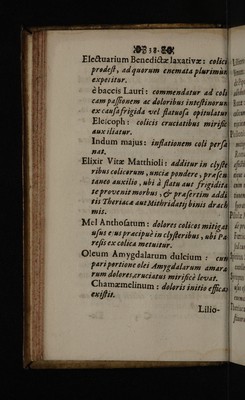 38.
Electuarium Benedictæ laxativæ: colici
prodest, ad quorum enemata plurimùm
expetitur.
è baccis Lauri: commendatur ad coli
cam passionem ac doloribus intestinorum
ex causa frigida vel flatuosa opitulatur
Eleicoph: colicis cruciatibus mirificè
auxiliatur.
Indum majus: inflationem coli persa
nat.
Elixir Vitæ Matthioli: additur in clyste
ribus colicorum, uncia pondere, præsen
taneo auxilio, ubi à flatu aut frigidita
te provenit morbus, & præsertim addi
tis Theriaca aut Mithridatij binis drach
mis.
Mel Anthosatum: dolores colicos mitigat
usus ejus præcipuè in clysteribus, ubi Pa
resis ex colica metuitur.
Oleum Amygdalarum dulcium: cum
pari portione olei Amygdalarum amara
rum dolores cruciatus mirificè levat.
Chamæmelinum: doloris initio efficax
existit.
Lilio-